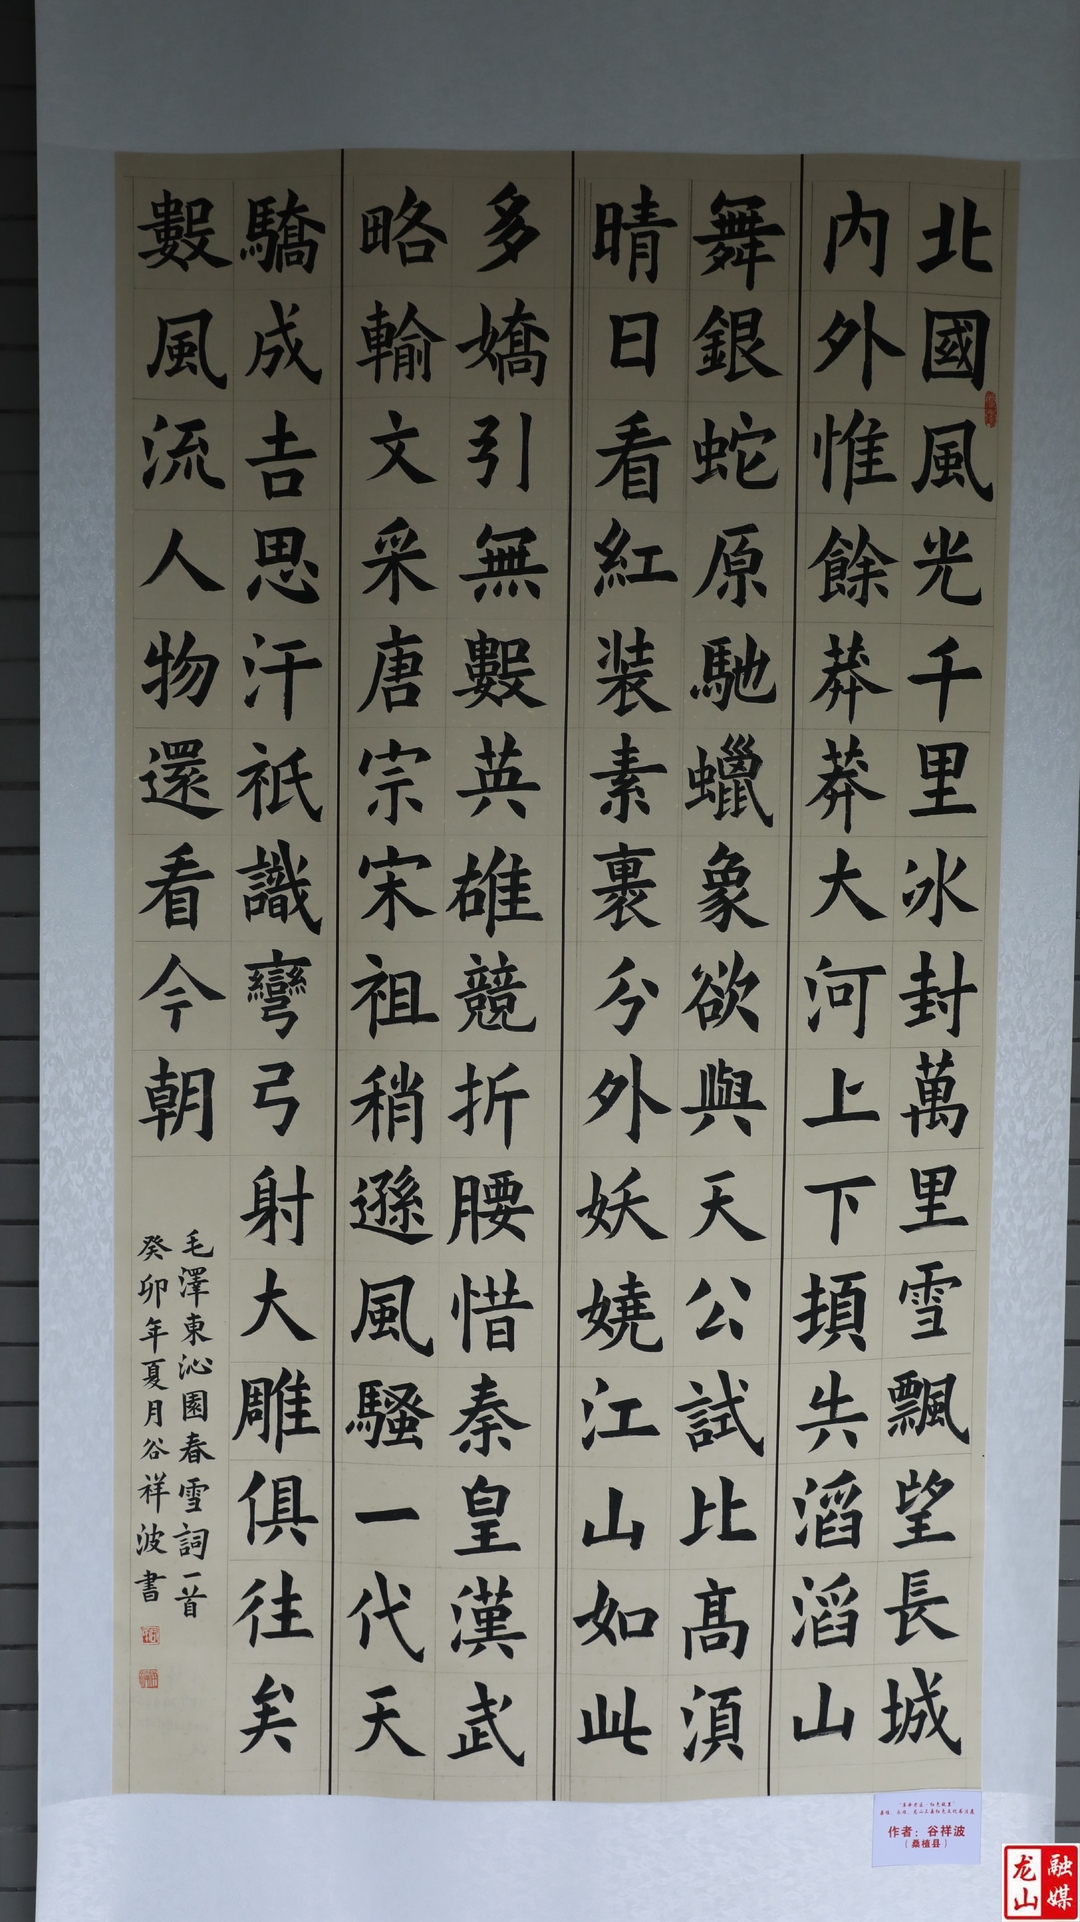 北國風光千里冰封萬里雪飄望長城
内外惟餘莽莽大河上下頓失滔滔山
舞銀蛇原馳蠟象欲與天公試比髙須
晴日看紅装素裹分外妖嬈江山如此
多嬌引無數英雄競折腰惜秦皇漢武
略輸文采唐宗宋祖稍遜風騷一代天
驕成吉思汗祇識彎弓射大雕俱往矣
數風流人物還看今朝
毛澤東沁園春雪詞一首
癸卯年夏月谷祥波書
作者：谷祥波
（桑植县）
龙山
融媒